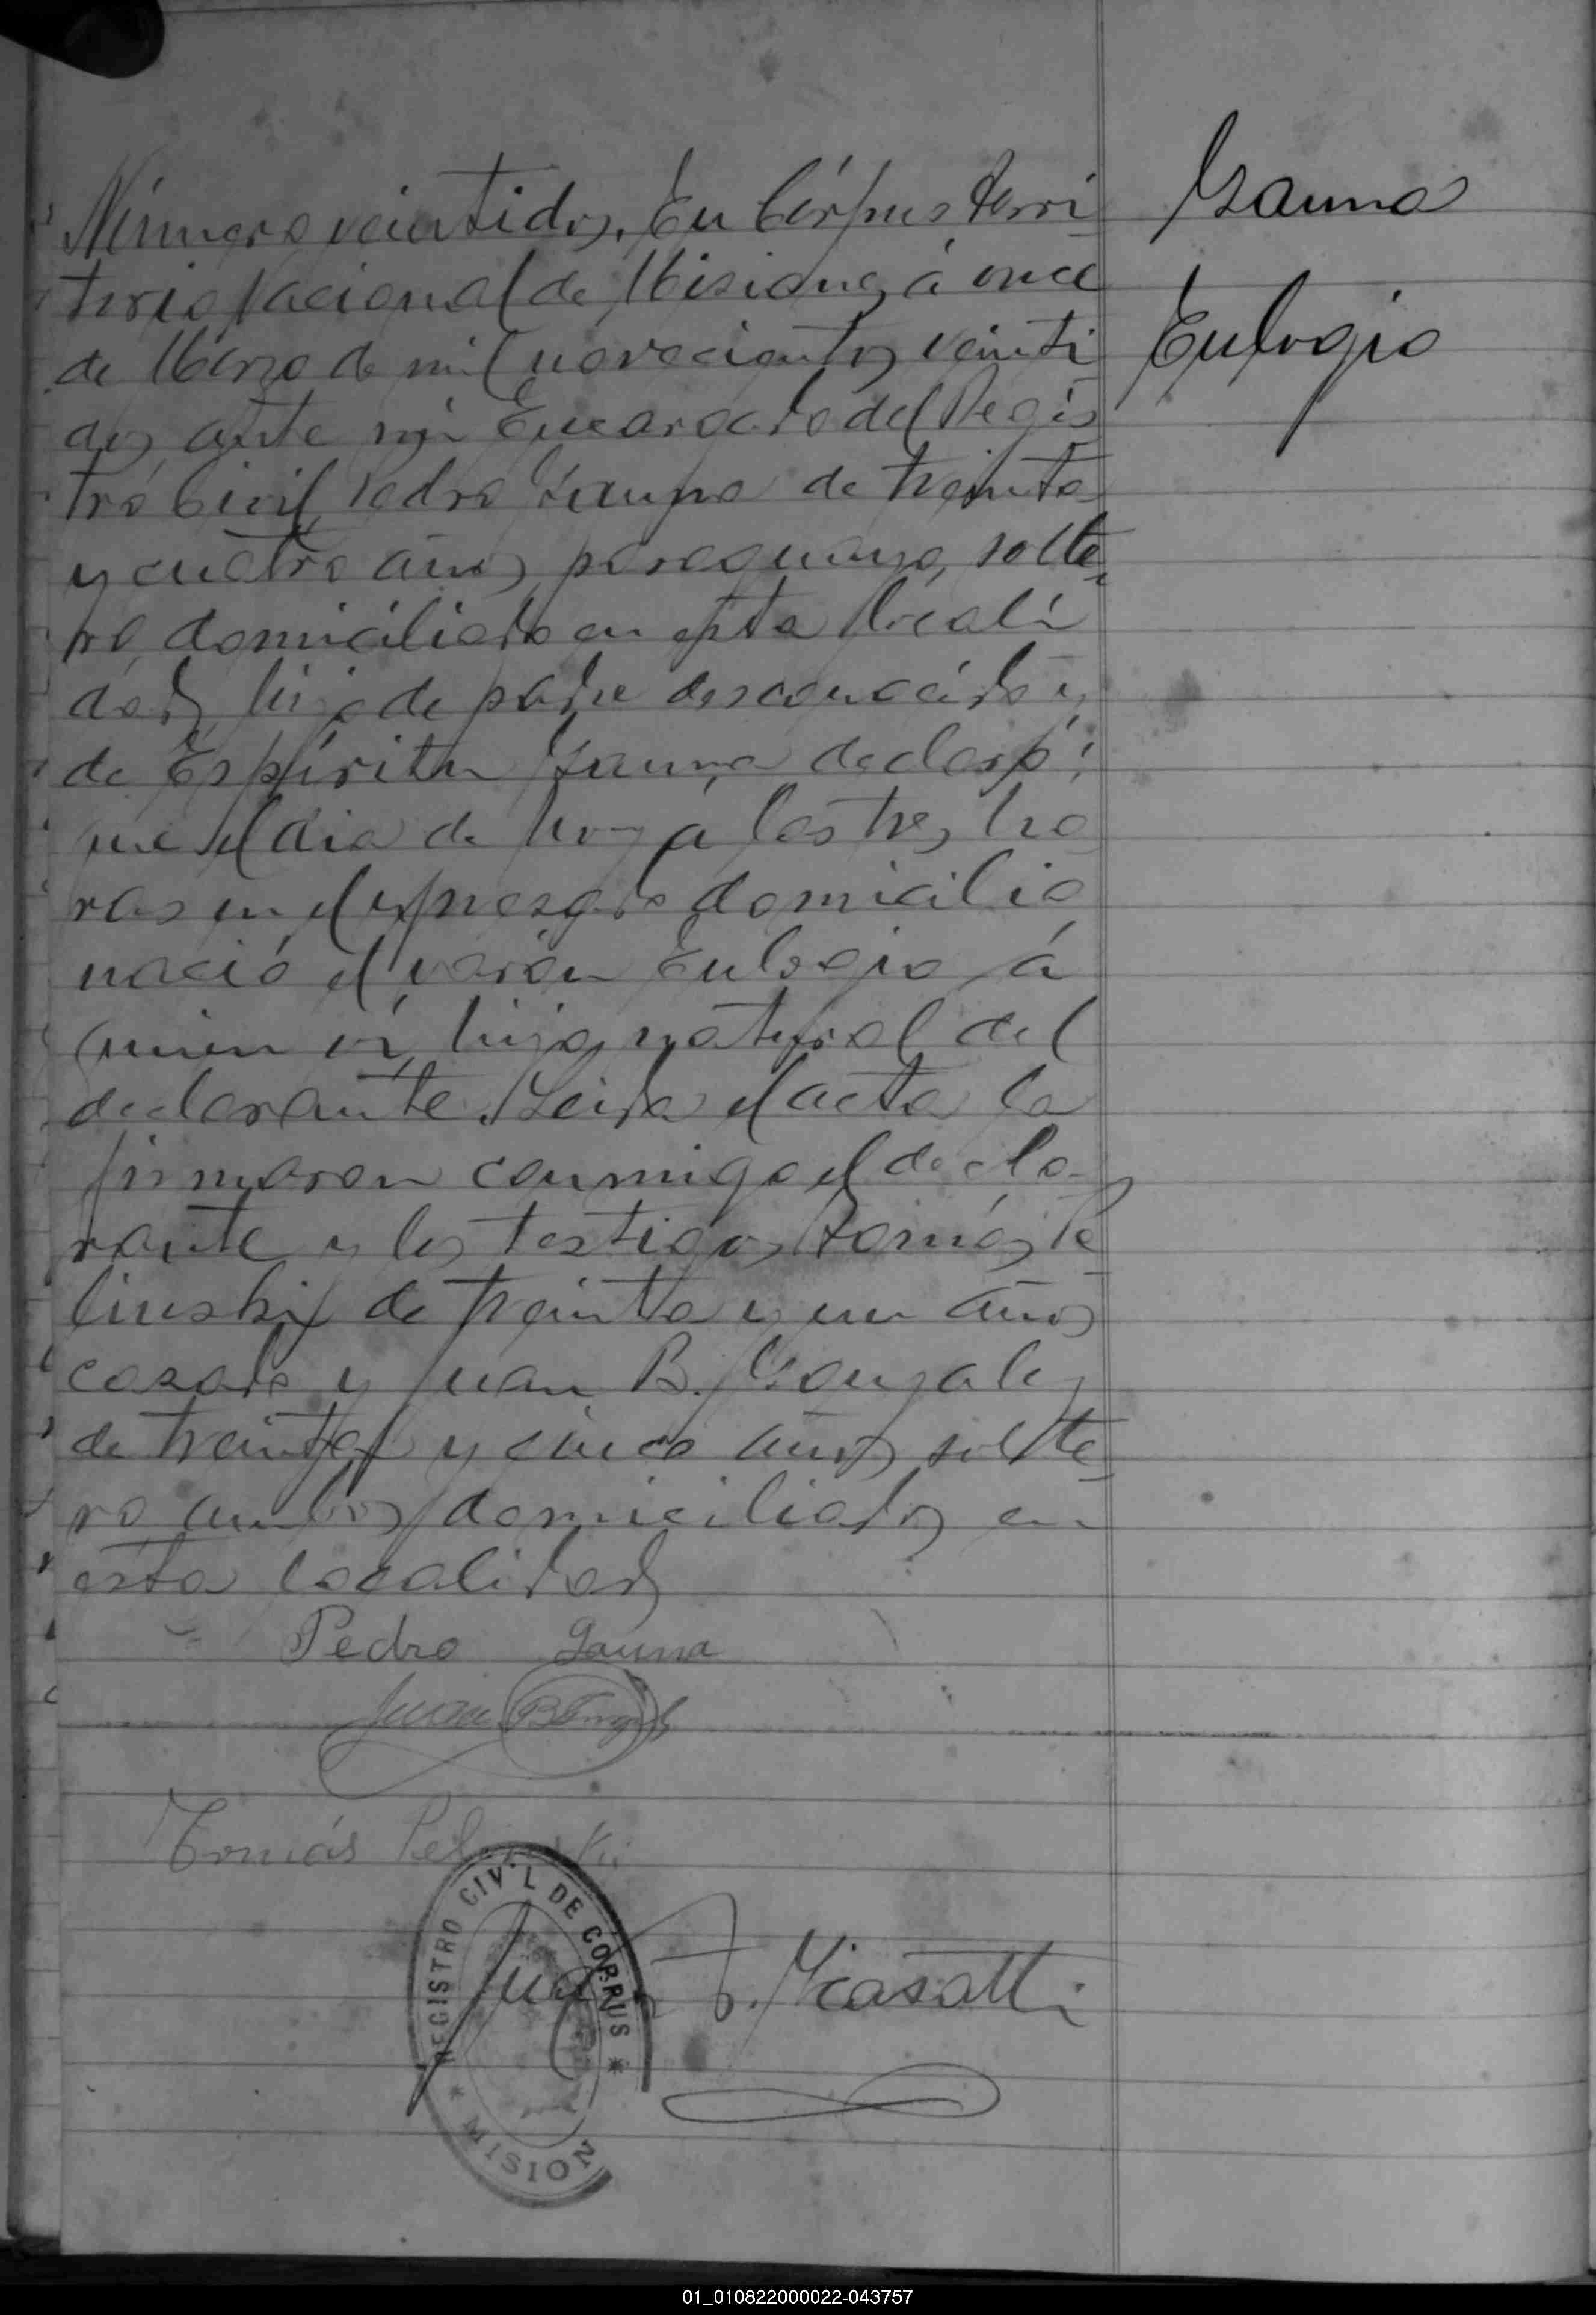 Gauna
Eulogio
Número veintidos. En Córpus terri
torio Nacional de Misiones á once
de Marzo de mil novecientos veinti
dos ante mi Encargado del Regis
tro Civil Pedro Gauna de treinta
y cuatro años, paraguayo, solte
ro, domiciliado en esta locali
dad, hijo de padre desconocido y
de Espíritu Gauna declaró:
que el dia de hoy á las tres ho
ras en el expresado domicilio
nació el varón Eulogio á
quien ví, hijo natural del
declarante. Leida el acta la
firmaron conmigo el decla
rante y los testigos Tomás Pe
linski de treinta y un años
casado y Juan B. Gonzalez
de treinta y cinco años solte
ro ambos domiciliados en
esta localidad
Pedro Gauna
Juan B
Tomás Pelinski
REGISTRO CIVIL DE CORPUS
* MISION *
Juan F. Micasatti
01_010822000022-043757